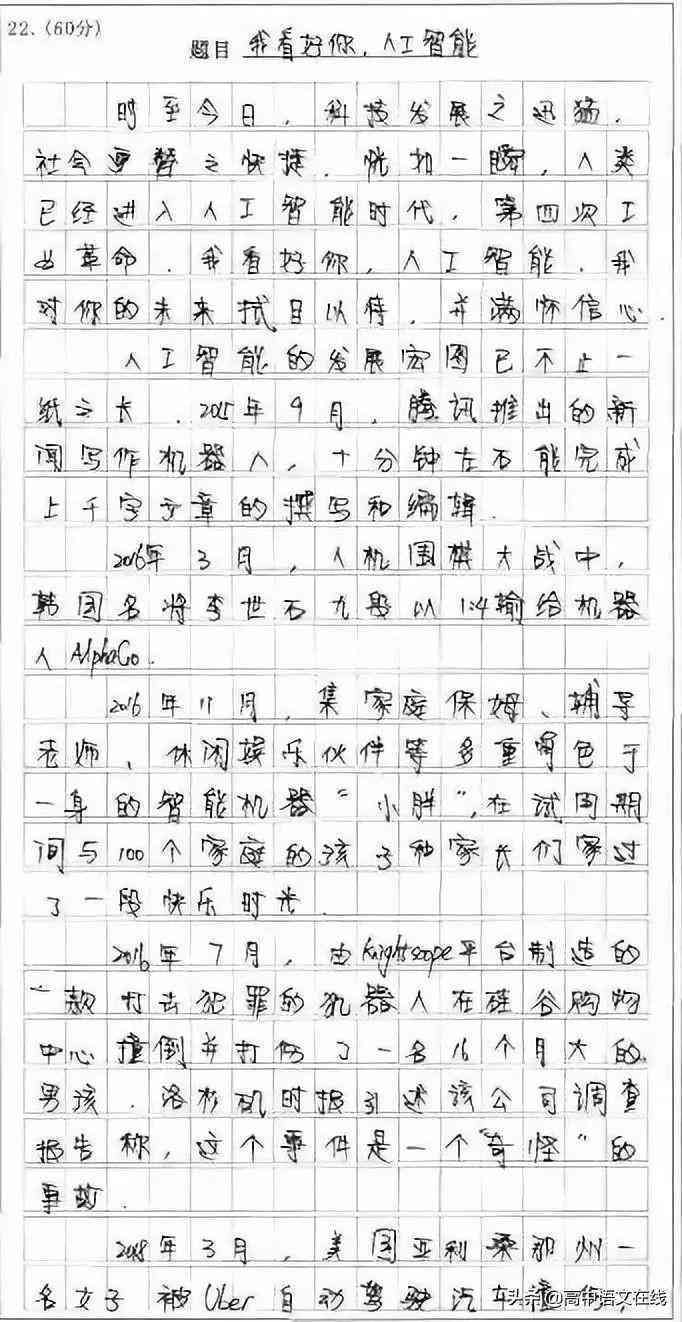 22.（60分）
题目 我看好你，人工智能
时至今日，科技发展之迅猛，
社会更替之快捷，恍如一瞬，人类
已经进入人工智能时代，第四次工
业革命．我看好你，人工智能．我
对你的未来拭目以待，并满怀信心．
人工智能的发展宏图已不止一
纸之长．2015年9月，腾讯推出的新
闻写作机器人，十分钟左右能完成
上千字文章的撰写和编辑．
2016年3月，人机围棋大战中，
韩国名将李世石九段以1:4输给机器
人AlphaGo．
2016年11月，集家庭保姆、辅导
老师、休闲娱乐伙伴等多重角色于
一身的智能机器“小胖”，在试用期
间与100个家庭的孩子和家长们家过
了一段快乐时光．
2016年7月，由Knightscope平台制造的
一款打击犯罪的机器人在硅谷购物
中心撞倒并打伤了一名16个月大的
男孩．洛杉矶时报引述该公司调查
报告称，这个事件是一个“奇怪”的
事故．
2018年3月，美国亚利桑那州一
名女子被Uber自动驾驶汽车撞
头条@高中语文在线